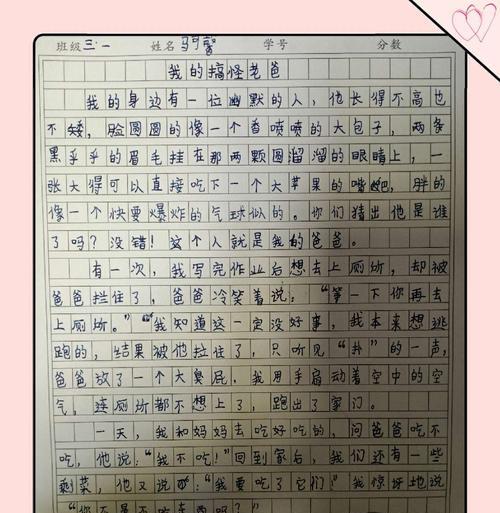 班级 三.一 姓名 马可馨 学号 分数
我的搞怪老爸
我的身边有一位幽默的人，他长得不高也
不矮，脸圆圆的像一个香喷喷的大包子，两条
黑乎乎的眉毛挂在那两颗圆溜溜的眼睛上，一
张大得可以直接吃下一个大苹果的嘴吧，胖的
像一个快要爆炸的气球似的。你们猜出他是谁
了吗？没错！这个人就是我的爸爸。
有一次，我写完作业后想去上厕所，却被
爸爸拦住了，爸爸冷笑着说：“等一下你再去
上厕所。”“我知道这一定没好事，我本来想逃
跑的，结果被他拉住了，只听见“扑”的一声，
爸爸放了一个大臭屁，我用手扇动着空中的空
气，连厕所都不想上了，跑出了家门。
一天，我和妈妈去吃好吃的，问爸爸吃不
吃，他说：“我不吃！”回到家后，我们还有一些
剩菜，他又说：“我要吃了它们！”我惊讶地说
“你不是不吃东西吗？”